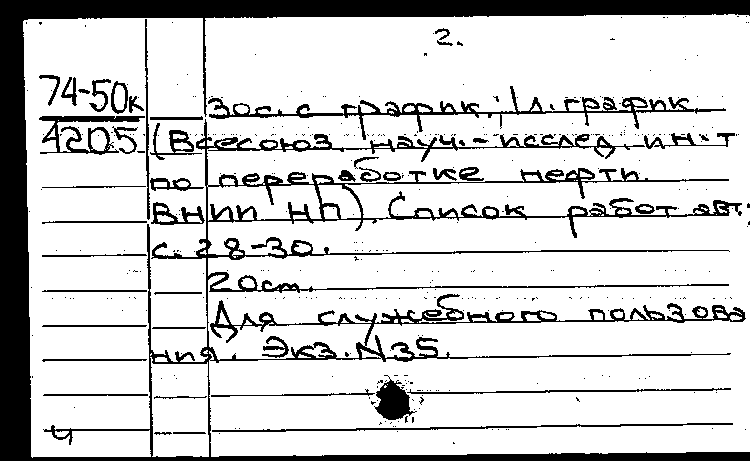 2.
74-50к
4205
30с. с график.; 1л. график
(Всесоюз. науч.-исслед. ин-т
по переработке нефти.
ВНИИ НП). Список работ авт.:
с. 28-30.
20см.
Для служебного пользова
ния. Экз. N35.
ч